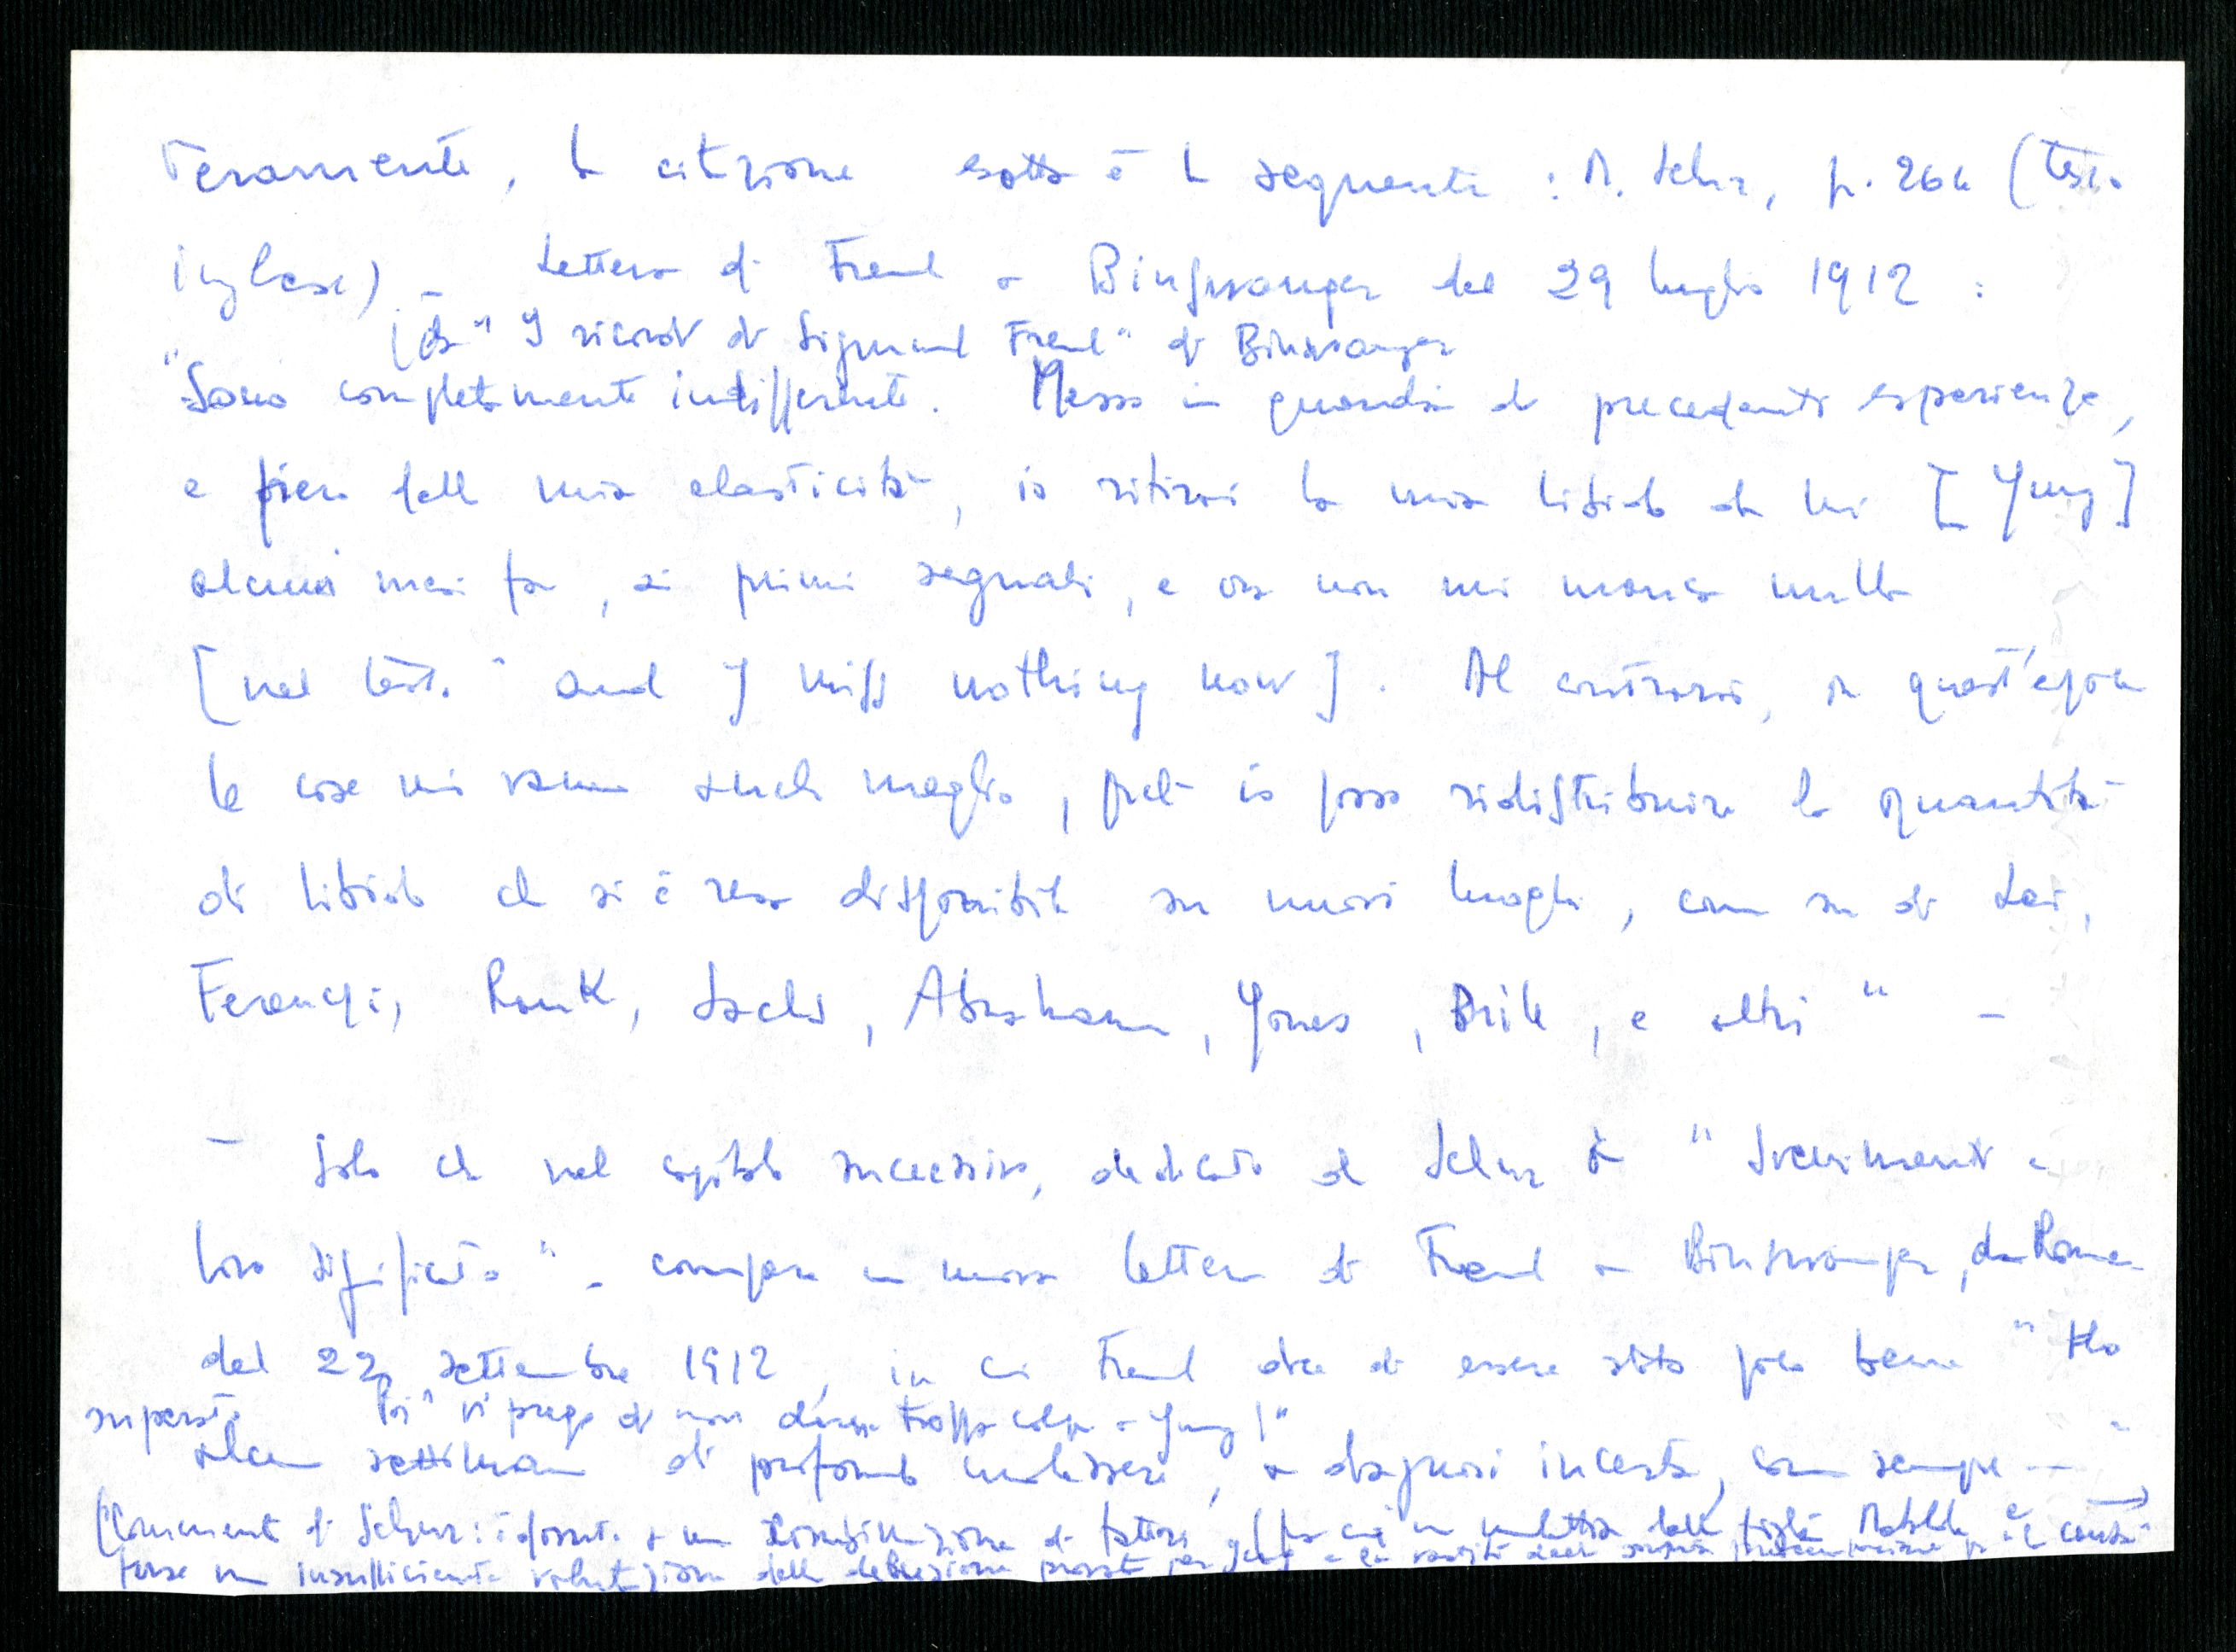 Veramente, la citazione esatta è la seguente: M. Schur, p. 264 (testo
inglese) – Lettera di Freud a Binswanger del 29 luglio 1912:
(da "I ricordi di Sigmund Freud" di Binswanger
"Sono completamente indifferente. Messo in guardia da precedenti esperienze,
e fiero della mia elasticità, io ritirai la mia libido da lui [Jung]
alcuni mesi fa, ai primi segnali, e ora non mi manca nulla
[nel testo "and I miss nothing now]. Al contrario, in quest'epoca
le cose mi vanno anche meglio, perché io posso ridistribuire la quantità
di libido che si è resa disponibile su nuovi luoghi, come su di Lei,
Ferenczi, Rank, Sachs, Abraham, Jones, Brill, e altri" –
– Solo che nel capitolo successivo, dedicato da Schur a "Svenimenti e
loro significato" – compare una nuova lettera di Freud a Binswanger, da Roma
del 22 settembre 1912, in cui Freud dice di essere stato poco bene "Ho
superato Poi "vi prego di non dare troppa colpa a Jung!"
alcune settimane di profondo malessere, a diagnosi incerta, come sempre –"
(Commento di Schur: è dovuto a una combinazione di fattori fra cui la malattia della figlia Matilde e
forse un insufficiente valutazione della delusione provata per Jung e la